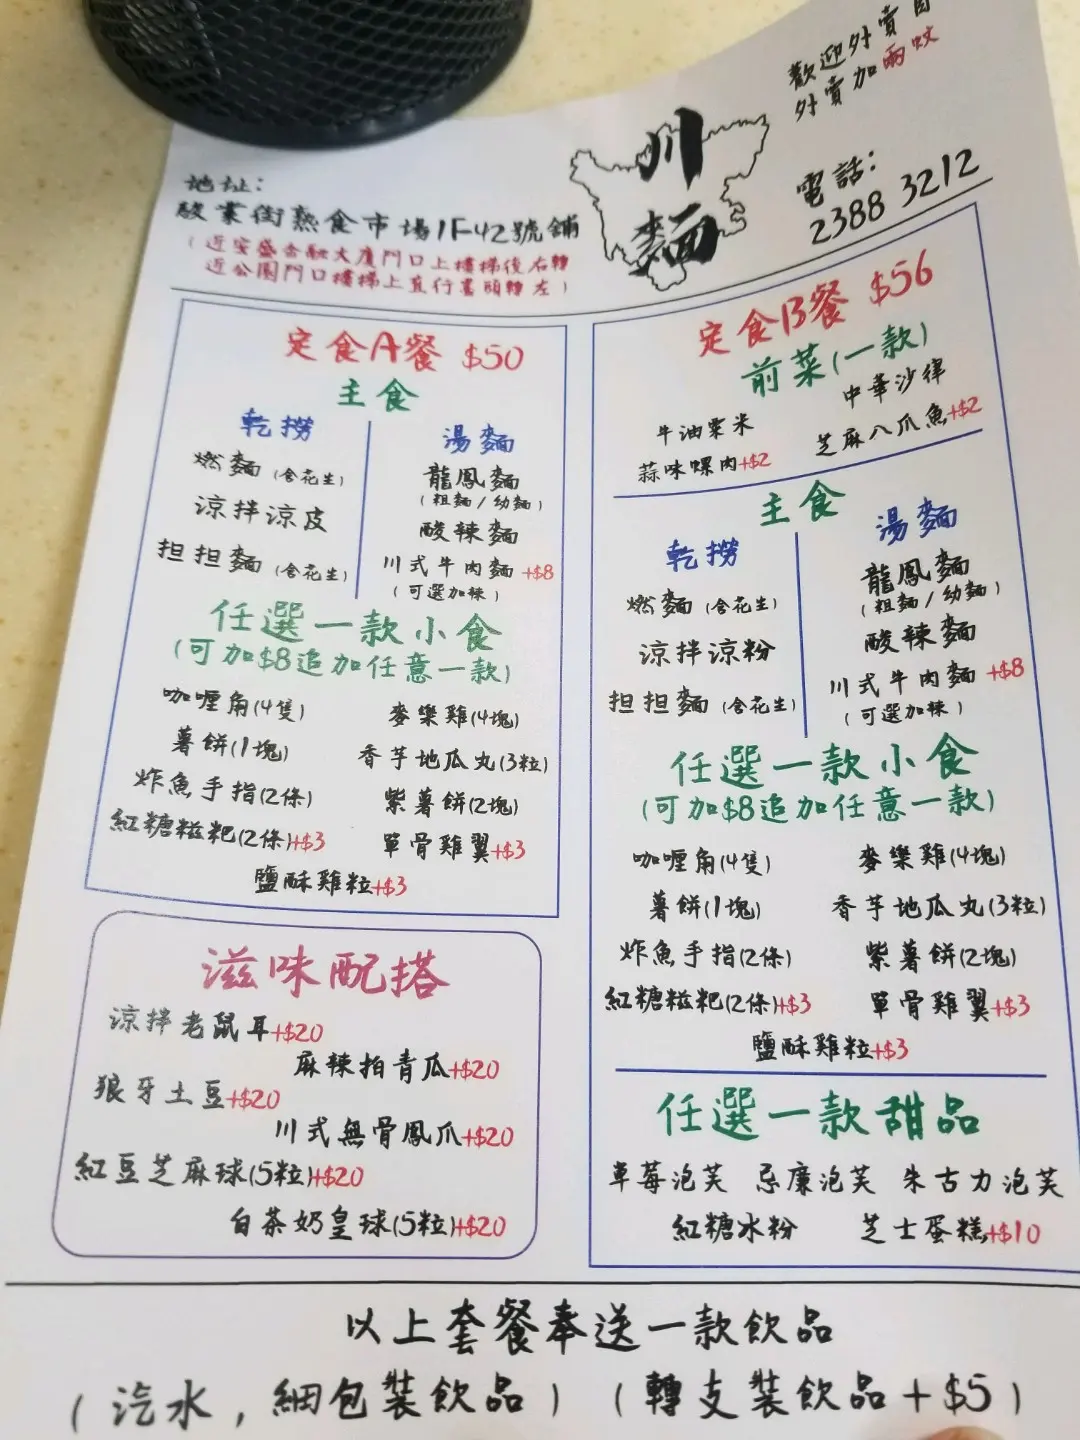 歡迎外賣自
外賣加兩蚊
川麵
電話：
2388 3212
地址：
駿業街熟食市場1F42號舖
（近安盛金融大廈門口上樓梯後右轉
近公園門口樓梯上直行盡頭轉左）
定食A餐 $50
主食
乾撈
燃麵（含花生）
涼拌涼皮
担担麵（含花生）
湯麵
龍鳳麵
（粗麵/幼麵）
酸辣麵
川式牛肉麵+$8
（可選加辣）
任選一款小食
（可加$8追加任意一款）
咖喱角(4隻)
麥樂雞(4塊)
薯餅(1塊)
香芋地瓜丸(3粒)
炸魚手指(2條)
紫薯餅(2塊)
紅糖糍粑(2條)+$3
單骨雞翼+$3
鹽酥雞粒+$3
滋味配搭
涼拌老鼠耳+$20
麻辣拍青瓜+$20
狼牙土豆+$20
川式無骨鳳爪+$20
紅豆芝麻球(5粒)+$20
白茶奶皇球(5粒)+$20
定食B餐 $56
前菜(一款)
牛油粟米
中華沙律
蒜味螺肉+$2
芝麻八爪魚+$2
主食
乾撈
燃麵（含花生）
涼拌涼粉
担担麵（含花生）
湯麵
龍鳳麵
（粗麵/幼麵）
酸辣麵
川式牛肉麵+$8
（可選加辣）
任選一款小食
（可加$8追加任意一款）
咖喱角(4隻)
麥樂雞(4塊)
薯餅(1塊)
香芋地瓜丸(3粒)
炸魚手指(2條)
紫薯餅(2塊)
紅糖糍粑(2條)+$3
單骨雞翼+$3
鹽酥雞粒+$3
任選一款甜品
草莓泡芙 忌廉泡芙 朱古力泡芙
紅糖冰粉 芝士蛋糕+$10
以上套餐奉送一款飲品
（汽水，細包裝飲品）（轉支裝飲品+$5）